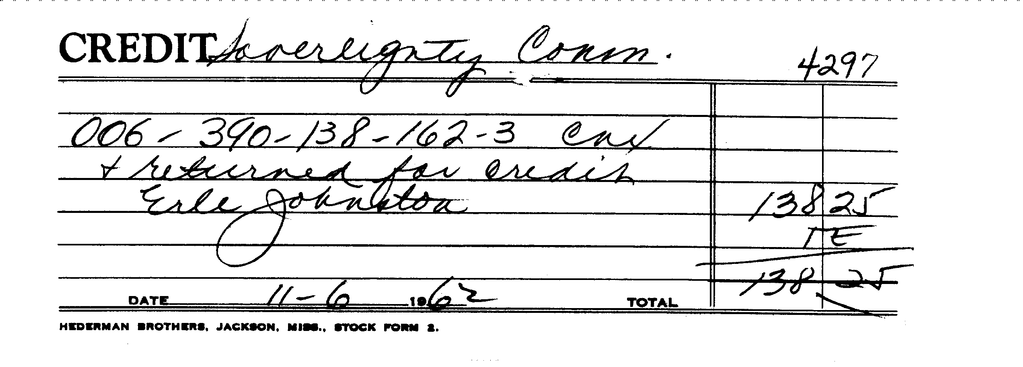 CREDIT Sovereignty Comm. 4297
006-390-138-162-3 cnx
+ returned for credit
Erle Johnston 138 25
TE
138 25
DATE 11-6 1962 TOTAL
HEDERMAN BROTHERS, JACKSON, MISS., STOCK FORM 2.